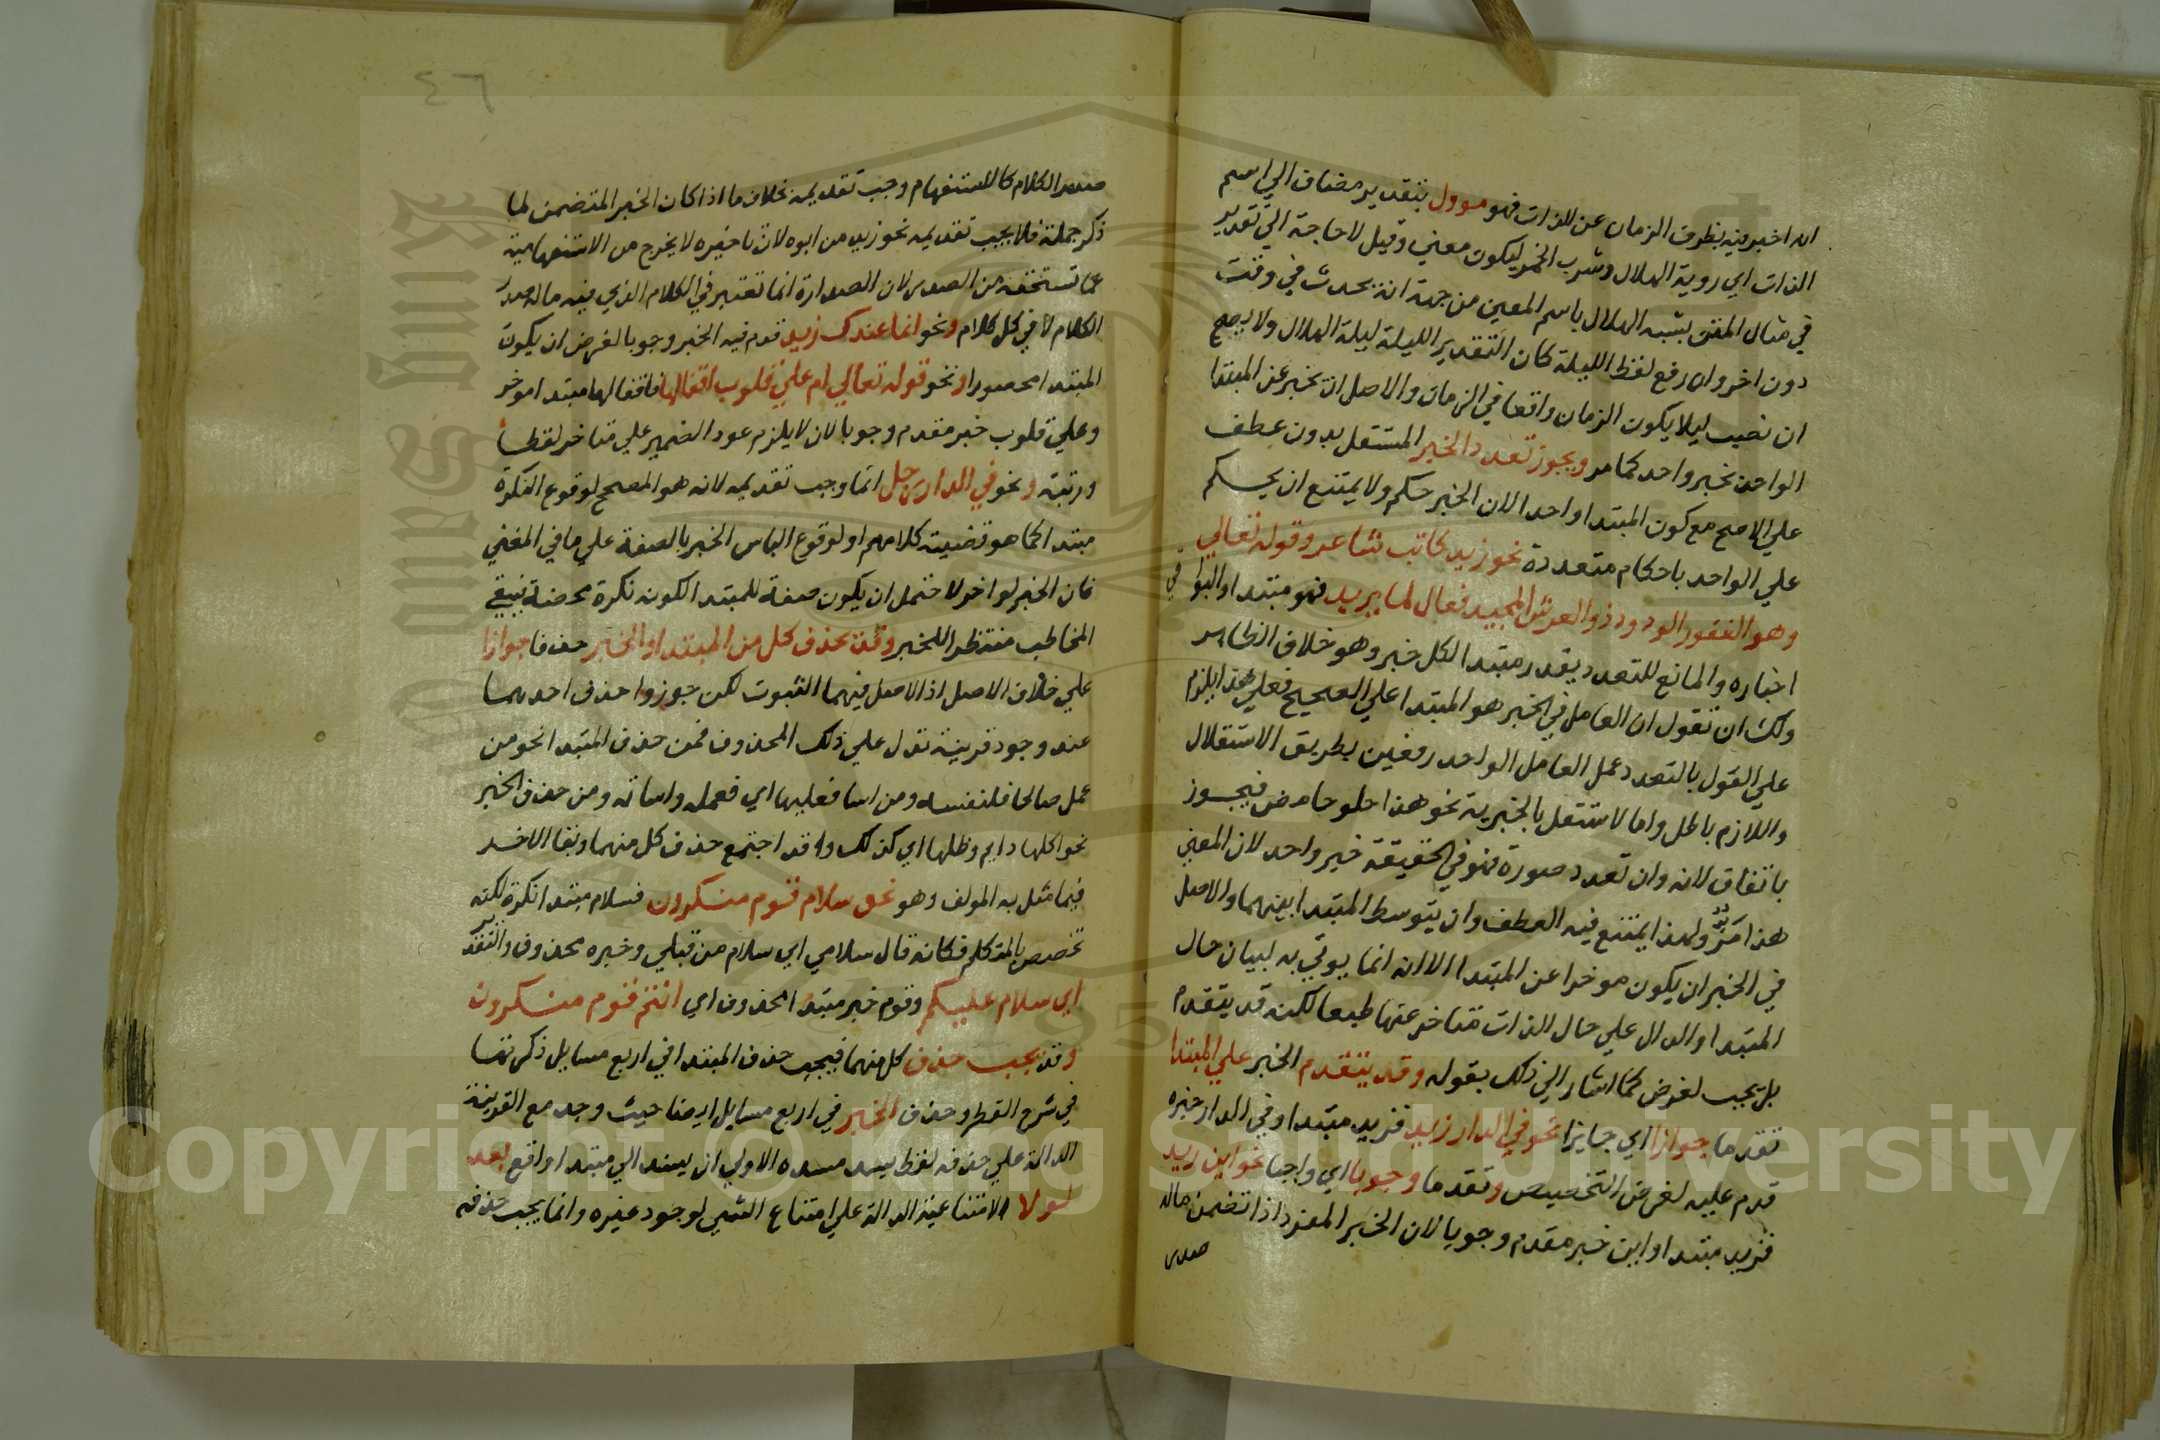 ان اخبر فيه بظرف الزمان عن للذات فهو موول بتقدير مضاف الي اسم
الذات اي روية الهلال وشرب الخمر ليكون معني وقيل لا حاجة الي تقدير
في مثال المتن بشبه الهلال باسم المعين من جهة انه يحدث في وقت
دون اخر وان رفع لفظ الليلة كان التقدير الليلة ليلة الهلال ولا يصح
ان نصب ليلا يكون الزمان واقعا في الزمان والاصل ان يخبر عن المبتدا
الواحد بخبر واحد كما مر ويجوز تعدد الخبر المستقل بدون عطف
علي الاصح مع كون المبتدا واحدا لان الخبر حكم ولا يمتنع ان يحكم
علي الواحد باحكام متعددة نحو زيد كاتب شاعر وقوله تعالي
وهو الغفور الودود ذو العرش المجيد فعال لما يريد فهو مبتدا والبواقي
اخباره والمانع للتعدد يقدر مبتدا لكل خبر وهو خلاف الظاهر
ولك ان تقول ان العامل في الخبر هو المبتدا علي الصحيح فعلي هذا يلزم
علي القول بالتعدد عمل العامل الواحد رفعين بطريق الاستقلال
واللازم باطل واما لا ستقل بالخبرية نحو هذا حلو حامض فيجوز
باتفاق لانه وان تعدد صورة فهو في الحقيقة خبر واحد لان المعني
هذا مز ولهذا يمتنع فيه العطف وان يتوسط المبتدا بينهما والاصل
في الخبر ان يكون موخرا عن المبتدا الا انه انما يوتي به لبيان حال
المبتدا والدال علي حال الذات متاخر عنها طبعا لكنه قد يتقدم
بل يجب لغرض كما اشار الي ذلك بقوله وقد يتقدم الخبر علي المبتدا
تقدما جوازا اي جايزا نحو في الدار زيد فزيد مبتدا وفي الدار خبره
قدم عليه لغرض التخصيص وتقدما وجوبا اي واجبا نحو اين زيد
فزيد مبتدا واين خبر مقدم وجوبا لان الخبر المفرد اذا تضمن ماله
صدر
٤٦
صدر الكلام كالاستفهام وجب تقديمه بخلاف ما اذا كان الخبر المتضمن لما
ذكر جملة فلا يجب تقديمه نحو زيد من ابوه لان تاخيره لا يخرج من الاستفهامية
عما تستحقه من الصدر لان الصدارة انما تعتبر في الكلام الذي فيه ماله صدر
الكلام لا في كل كلام ونحو انما عندك زيد قدم فيه الخبر وجوبا لغرض ان يكون
المبتدا محصورا ونحو قوله تعالي ام علي قلوب اقفالها فاقفالها مبتدا موخر
وعلي قلوب خبر مقدم وجوبا لان لا يلزم عود الضمير علي متاخر لفظا
ورتبة ونحو في الدار رجل انما وجب تقديمه لانه هو المصحح لوقوع النكرة
مبتدا كما هو قضيته كلامهم او لوقوع الباس الخبر بالصفة علي ما في المغني
فان الخبر لو اخر لاحتمل ان يكون صفة للمبتدا لكونه نكرة محضة فيبقي
المخاطب منتظرا للخبر وقد يحذف كل من المبتدا والخبر حذفا جوازا
علي خلاف الاصل اذ الاصل فيهما الثبوت لكن جوزوا حذف احدهما
عند وجود قرينة تدل علي ذلك المحذوف فمن حذف المبتدا نحو من
عمل صالحا فلنفسه ومن اسا فعليها اي فعمله واساته ومن حذف الخبر
نحو اكلها دايم وظلها اي كذلك وقد اجتمع حذف كل منهما وبقا الاخر
فيما مثل به المولف وهو نحو سلام قوم منكرون فسلام مبتدا نكرة لكنه
تخصص بالمتكلم فكانه قال سلامي اي سلام من قبلي وخبره محذوف والتقدير
اي سلام عليكم وقوم خبر مبتدا محذوف اي انتم قوم منكرون
وقد يجب حذف كل منهما فيجب حذف المبتدا في اربع مسايل ذكرتها
في شرح القطر وحذف الخبر في اربع مسايل ايضا حيث وجد مع القرينة
الدالة علي حذفه لفظ يسد مسده الاولي ان يسند الي مبتدا واقع بعد
لولا الامتناعية الدالة علي امتناع الشي لوجود غيره وانما يجب حذفه
Copyright © King Saud University